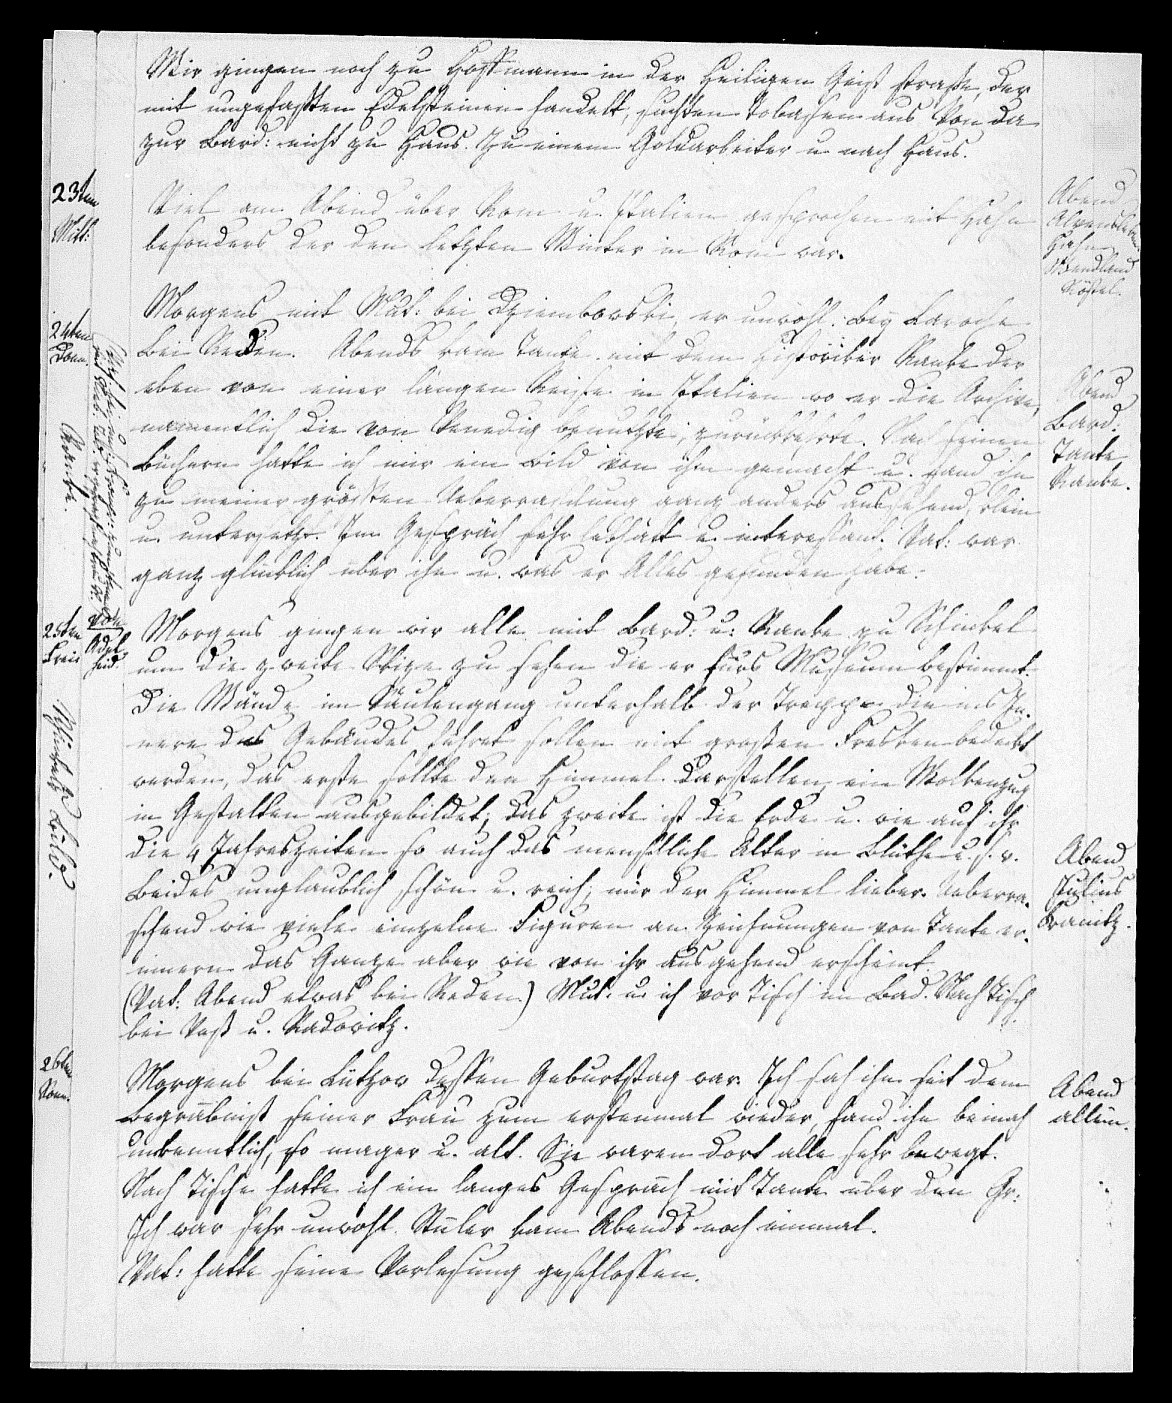 Wir gingen noch zu Hoffmann in der Heiligen Geist straße, der
mit ungefaßten Edelsteinen handelt, suchten Tobasen aus Von da
zur Bard: nicht zu Haus. Zu einem Goldarbeiter u nach Haus.
23ten
Mitt:
Viel am Abend über Rom u. Italien gesprochen mit Hahn
besonders der den letzten Winter in Rom war.
Abend
Alvensleben
Hahn
Wendland
Röstel.
24ten
Donn:
Morgens mit Mut: bei Dziembowski, er unwohl. Bey Laroche
bei Reden. Abends kam Tante mit dem Historiker Ranke der
eben von einer langen Reise in Italien wo er die Archive,
namentlich die von Venedig benutzte, zurückkehrte. Nach seinen
Büchern hatte ich mir ein Bild von ihm gemacht u. fand ihn
zu meiner größten Ueberraschung ganz anders aussehend, klein
u. untersetzt. Im Gespräch sehr lebhaft u. interessant. Vat: war
ganz glücklich über ihn u. was er Alles gefunden habe.
Abend
Bard:
Tante
Ranke.
Ranke.
von
Adel
heid
25ten
Frei:
Morgens gingen wir alle mit Bard: u: Ranke zu Schinkel
um die zweite Skize zu sehen die er fürs Museum bestimmt.
Die Wände im Säulengang unterhalb der Treppe die ins In-
nere des Gebäudes führet sollen mit großen Fresken bedeckt
werden, das erste sollte den Himmel darstellen, ein Wolkenzug
in Gestalten ausgebildet, das zweite ist die Erde u. wie auf ihr
die 4 Jahreszeiten so auch das menschliche Alter in Blüthe u. s. w.
Beides unglaublich schön u. reich, mir der Himmel lieber. Ueberra-
schend wie viele einzelne Figuren an Zeichnungen von Tante er-
innern das Ganze aber wie von ihr ausgehend erscheint
(Vat. Abend etwas bei Reden.) Mut: u: ich vor Tisch im Bad. Nach Tisch
bei Voß u. Radowitz.
Schinkels Bild.
Abend
Julius
Branitz.
26ten
Sonn:
Morgens bei Lützow dessen Geburtstag war. Ich sah ihn seit dem
Begräbniß seiner Frau zum erstenmal wieder, fand ihn beinah
unkenntlich, so mager u. alt. Sie waren dort alle sehr bewegt.
Nach Tische hatte ich ein langes Gespräch mit Tante über den Gr:
Ich war sehr unwohl. Stüler kam Abends noch einmal.
Vat: hatte seine Vorlesung geschlossen.
Abend
allein.